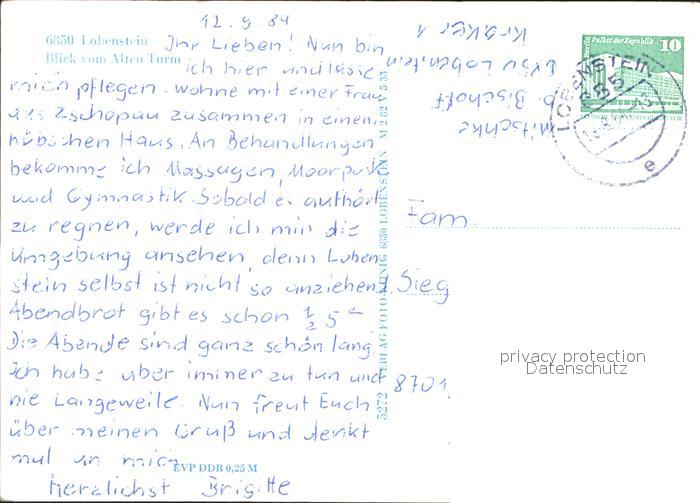 12.9.84
6850 Lobenstein
Blick vom Alten Turm
Ihr Lieben! Nun bin
ich hier und lasse
mich pflegen. Wohne mit einer Frau
aus Zschopau zusammen in einem
hübschen Haus. An Behandlungen
bekomme ich Massagen, Moorpack
und Gymnastik. Sobald es aufhört
zu regnen, werde ich mir die
Umgebung ansehen, denn Loben
stein selbst ist nicht so anziehend.
Abendbrot gibt es schon 1/2 5
Die Abende sind ganz schön lang
Ich habe aber immer zu tun und
nie Langeweile. Nun freut Euch
über meinen Gruß und denkt
mal an mich
Herzlichst Brigitte
EVP DDR 0,25 M
5272 VERLAG FOTO-KÖNIG 6850 LOBENSTEIN
Mitschke
b. Bischoff
6850 Lobenstein
1
Palast der Republik
Berlin
10
LOBENSTEIN
685
e
Fam.
Sieg
8701
privacy protection
Datenschutz